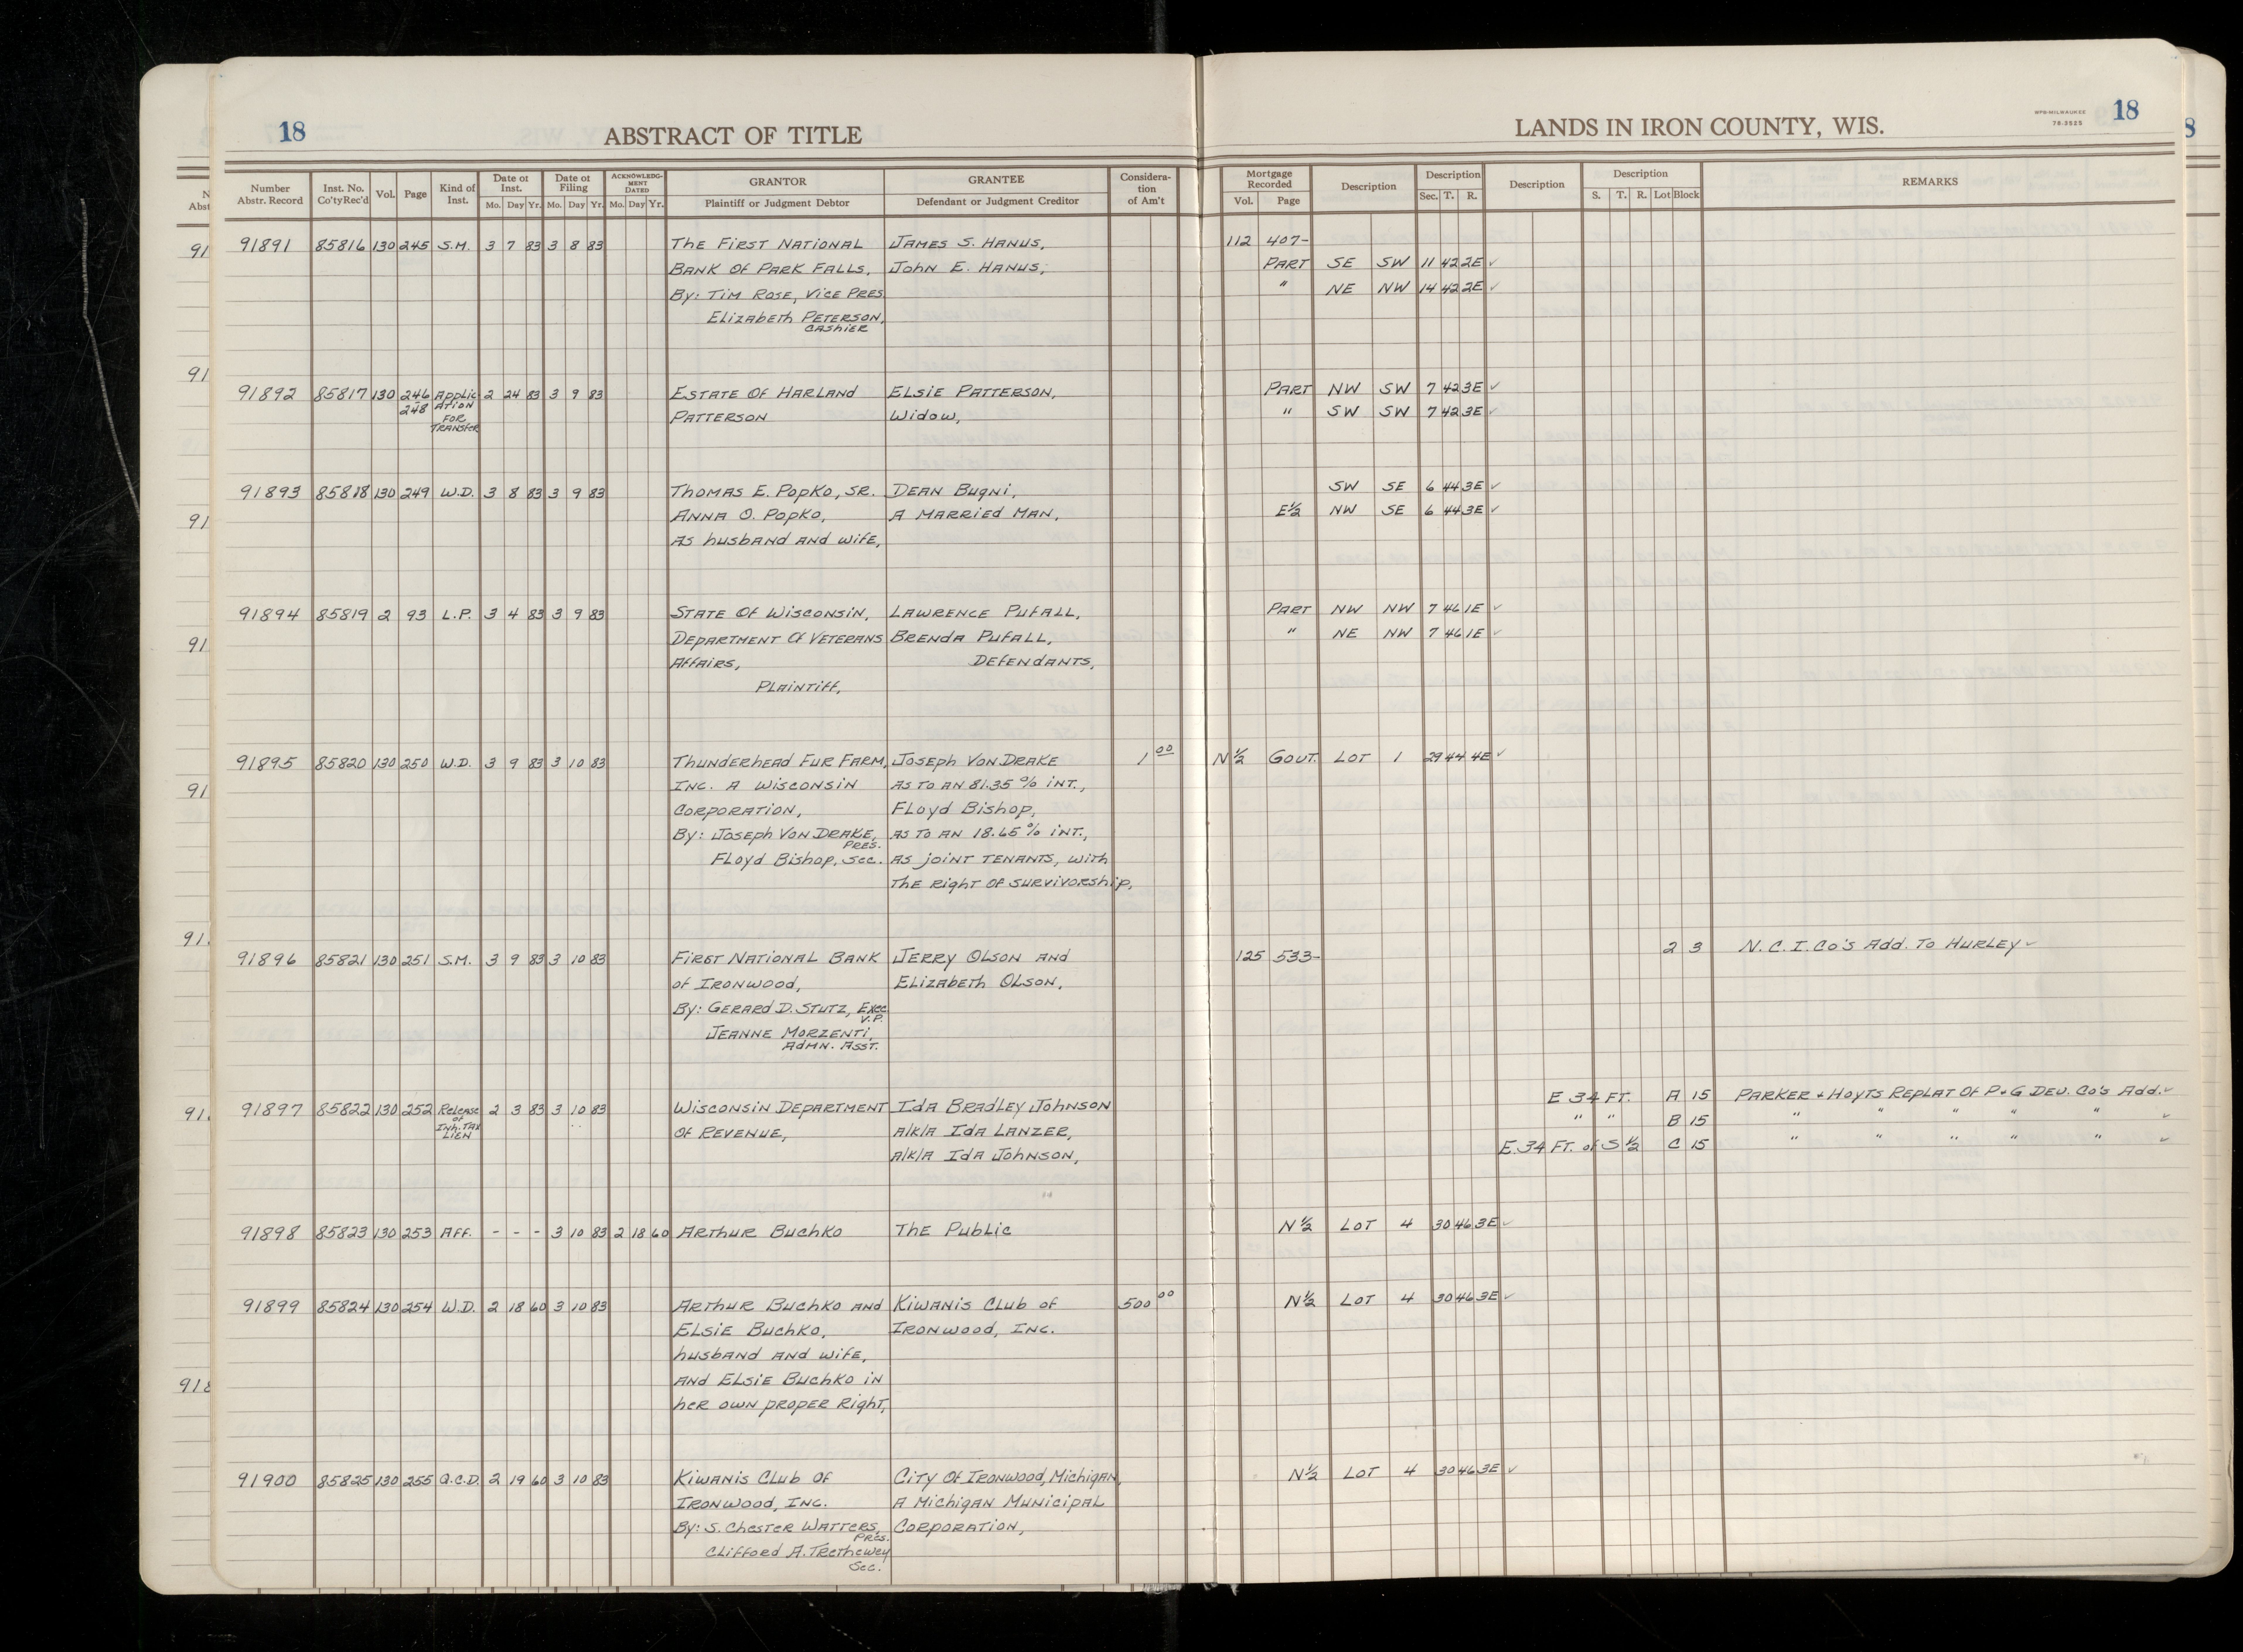 18
ABSTRACT OF TITLE
LANDS IN IRON COUNTY, WIS.
WPB-MILWAUKEE
78-3525
18
8
Number Abstr. Record | Inst. No. Co'ty Rec'd | Vol. | Page | Kind of Inst. | Date of Inst. Mo. Day Yr. | Date of Filing Mo. Day Yr. | ACKNOWLEDG-MENT DATED Mo. Day Yr. | GRANTOR Plaintiff or Judgment Debtor | GRANTEE Defendant or Judgment Creditor | Considera-tion of Am't | Mortgage Recorded Vol. Page | Description | Description Sec. T. R. | Description | Description S. T. R. Lot Block | REMARKS
91891 85816 130 245 S.M. 3 7 83 3 8 83 The First National James S. Hanus, 112 407-
Bank of Park Falls, John E. Hanus, Part SE SW 11 42 2E ✓
By: Tim Rose, Vice Pres. " NE NW 14 42 2E ✓
Elizabeth Peterson,
Cashier
91892 85817 130 246 Applic- 2 24 83 3 9 83 Estate of Harland Elsie Patterson, Part NW SW 7 42 3E ✓
248 ation Patterson Widow, " SW SW 7 42 3E ✓
for
Transfer
91893 85818 130 249 W.D. 3 8 83 3 9 83 Thomas E. Popko, Sr. Dean Bugni, SW SE 6 44 3E ✓
Anna O. Popko, A Married Man, E½ NW SE 6 44 3E ✓
As husband and wife,
91894 85819 2 93 L.P. 3 4 83 3 9 83 State of Wisconsin, Lawrence Pufall, Part NW NW 7 46 1E ✓
Department of Veterans Brenda Pufall, " NE NW 7 46 1E ✓
Affairs, Defendants,
Plaintiff,
91895 85820 130 250 W.D. 3 9 83 3 10 83 Thunderhead Fur Farm, Joseph Von Drake 1 00 N½ Gov't. Lot 1 29 44 4E ✓
Inc. A Wisconsin as to an 81.35% int.,
Corporation, Floyd Bishop,
By: Joseph Von Drake, as to an 18.65% int.,
Pres.
Floyd Bishop, Sec. as joint tenants, with
the right of survivorship,
91896 85821 130 251 S.M. 3 9 83 3 10 83 First National Bank Jerry Olson and 125 533- 2 3 N.C.I. Co's Add. To Hurley ✓
of Ironwood, Elizabeth Olson,
By: Gerard D. Stutz, Exec.
V.P.
Jeanne Morzenti,
Admn. Asst.
91897 85822 130 252 Release 2 3 83 3 10 83 Wisconsin Department Ida Bradley Johnson E 34 Ft. A 15 Parker + Hoyts Replat of P+G Dev. Co's Add. ✓
of Inh. Tax Lien Of Revenue, a/k/a Ida Lanzer, " " B 15 " " " " " ✓
a/k/a Ida Johnson, E. 34 Ft. of S½ C 15 " " " " " ✓
91898 85823 130 253 Aff. - - - 3 10 83 2 18 60 Arthur Buchko The Public N½ Lot 4 30 46 3E ✓
91899 85824 130 254 W.D. 2 18 60 3 10 83 Arthur Buchko and Kiwanis Club of 500 00 N½ Lot 4 30 46 3E ✓
Elsie Buchko, Ironwood, Inc.
husband and wife,
and Elsie Buchko in
her own proper right,
91900 85825 130 255 Q.C.D. 2 19 60 3 10 83 Kiwanis Club of City of Ironwood, Michigan, N½ Lot 4 30 46 3E ✓
Ironwood, Inc. A Michigan Municipal
By: S. Chester Watters, Corporation,
Pres.
Clifford A. Trethewey
Sec.